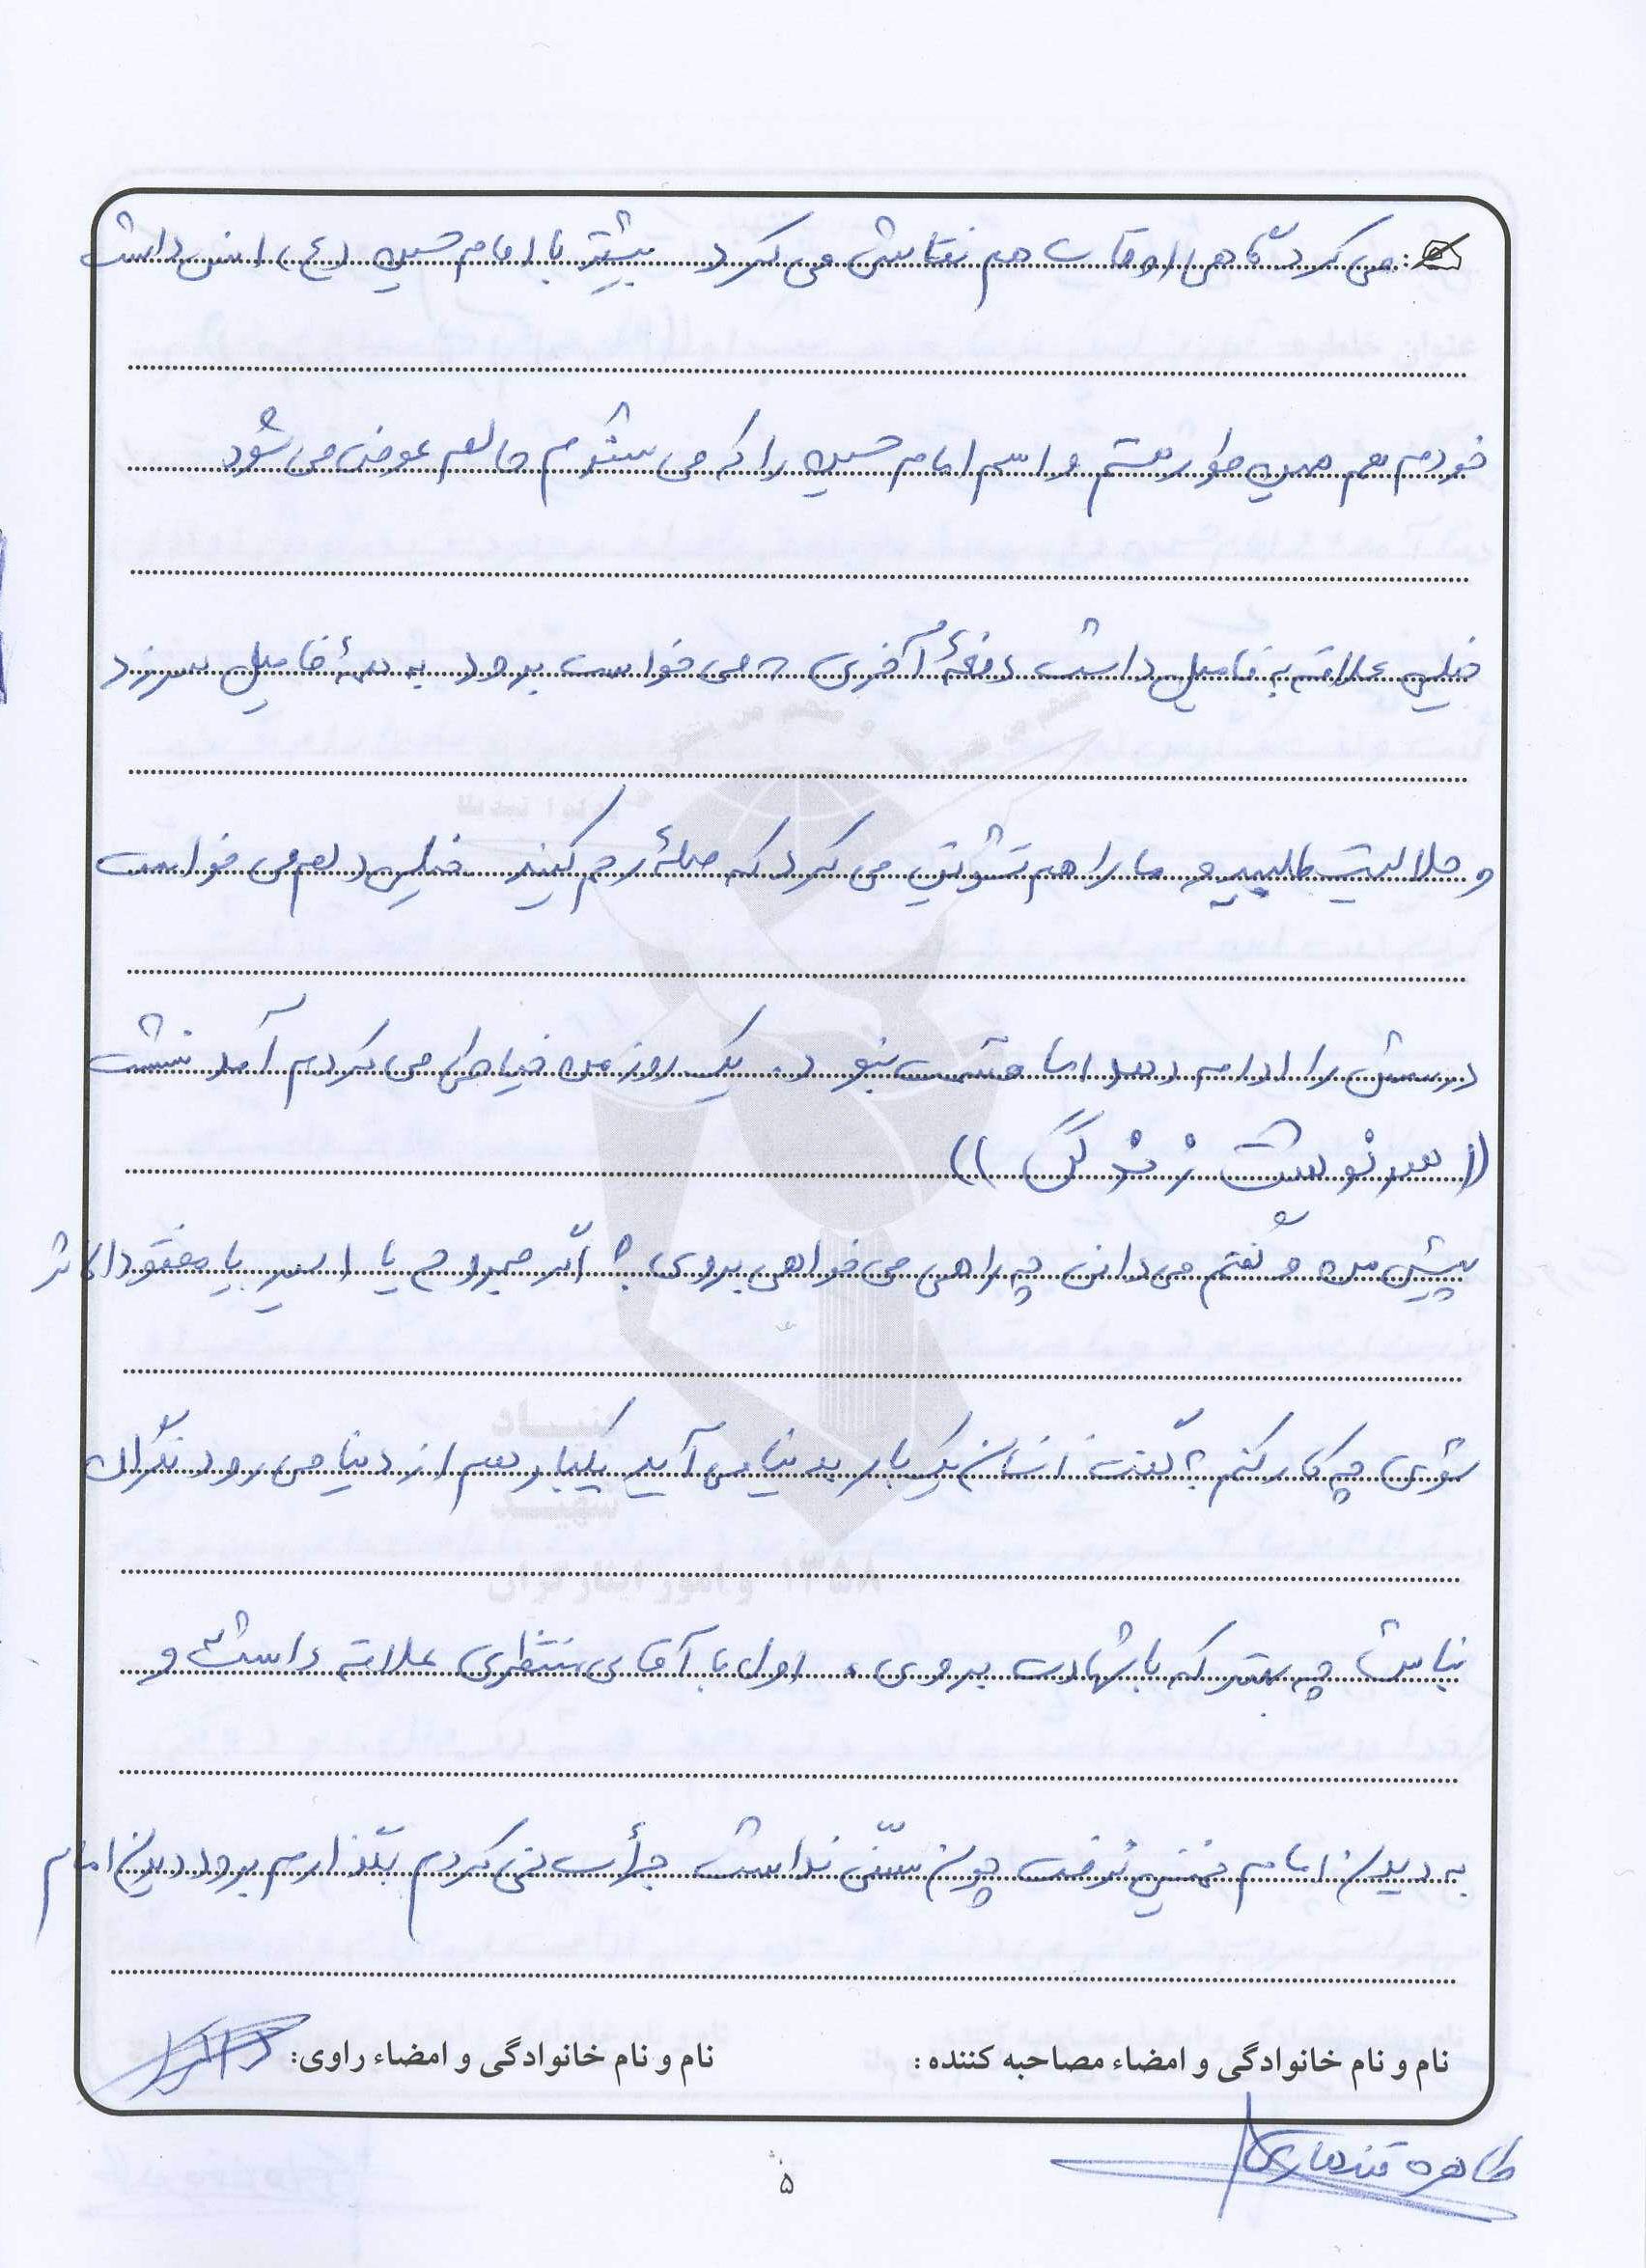 می کرد گاهی اوقات هم نقاشی می کرد بیشتر با امام حسین (ع) انس داشت
خودم هم همین طور هستم و اسم امام حسین را که می شنوم حالم عوض می شود
خیلی علاقه به فامیل داشت دفعهٔ آخری می خواست برود به همهٔ فامیل سر زد
و حلالیت طلبید و ما را هم تشویق می کرد که صلهٔ رحم کنید خیلی دلم می خواست
درسش را ادامه دهد اما قسمت نبود. یک روز من خیاطی می کردم آمد نشست
((سرنوشت زندگی))
پیش من و گفتم می دانی چه راهی می خواهی بروی؟ اگر مجروح یا اسیر یا مفقودالاثر
شوی چه کار کنم؟ گفت انسان یک بار به دنیا می آید یکبار هم از دنیا می رود نگران
نباش چه بهتر که با شهادت بروی. اول با آقای منتظری علاقه داشت و
به دیدن امام خمینی نرفت چون سنّی نداشت جرأت نمی کردم بگذارم برود دیدن امام
نام و نام خانوادگی و امضاء مصاحبه کننده: نام و نام خانوادگی و امضاء راوی:
طاهره قندهاری
۵
بنیاد
شهید
و امور ایثارگران ۱۳۵۸